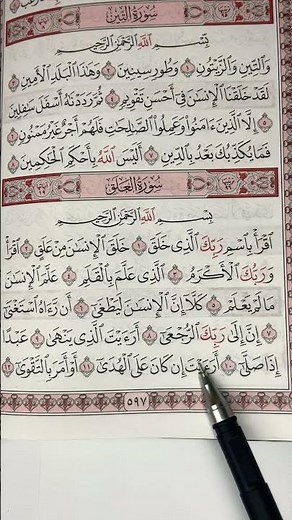 سُورَةُ التِّينِ
بِسْمِ اللَّهِ الرَّحْمَٰنِ الرَّحِيمِ
وَالتِّينِ وَالزَّيْتُونِ ١ وَطُورِ سِينِينَ ٢ وَهَٰذَا الْبَلَدِ الْأَمِينِ ٣
لَقَدْ خَلَقْنَا الْإِنسَٰنَ فِي أَحْسَنِ تَقْوِيمٍ ٤ ثُمَّ رَدَدْنَٰهُ أَسْفَلَ سَٰفِلِينَ
٥ إِلَّا الَّذِينَ ءَامَنُوا وَعَمِلُوا الصَّٰلِحَٰتِ فَلَهُمْ أَجْرٌ غَيْرُ مَمْنُونٍ ٦
فَمَا يُكَذِّبُكَ بَعْدُ بِالدِّينِ ٧ أَلَيْسَ اللَّهُ بِأَحْكَمِ الْحَٰكِمِينَ ٨
سُورَةُ الْعَلَقِ
بِسْمِ اللَّهِ الرَّحْمَٰنِ الرَّحِيمِ
اقْرَأْ بِاسْمِ رَبِّكَ الَّذِي خَلَقَ ١ خَلَقَ الْإِنسَٰنَ مِنْ عَلَقٍ ٢ اقْرَأْ
وَرَبُّكَ الْأَكْرَمُ ٣ الَّذِي عَلَّمَ بِالْقَلَمِ ٤ عَلَّمَ الْإِنسَٰنَ
مَا لَمْ يَعْلَمْ ٥ كَلَّا إِنَّ الْإِنسَٰنَ لَيَطْغَىٰ ٦ أَن رَّءَاهُ اسْتَغْنَىٰ
٧ إِنَّ إِلَىٰ رَبِّكَ الرُّجْعَىٰ ٨ أَرَءَيْتَ الَّذِي يَنْهَىٰ ٩ عَبْدًا
إِذَا صَلَّىٰ ١٠ أَرَءَيْتَ إِن كَانَ عَلَى الْهُدَىٰ ١١ أَوْ أَمَرَ بِالتَّقْوَىٰ ١٢
٥٩٧